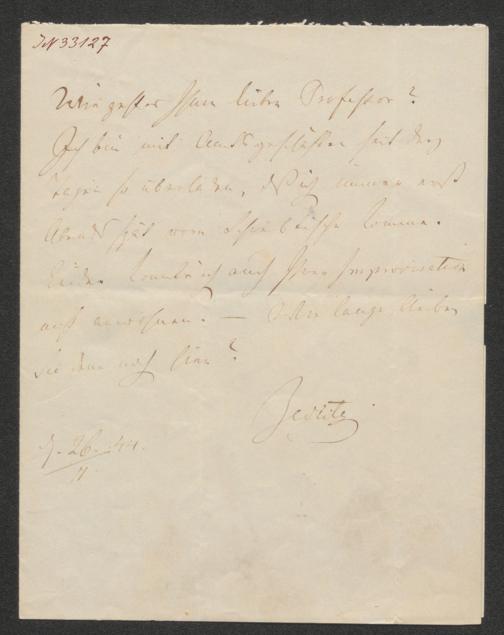 IN 33127
Wie geht es Ihnen lieber Professor?
Ich bin mit Amtsgeschäften seit drei
Tagen so überladen, daß ich immer erst
Abends spät vom Schreibtische komme.
Leider konnte ich auch Ihrer Improvisation
nicht anwohnen. — Wie lange bleiben
Sie denn noch hier?
d. 26/11 44.